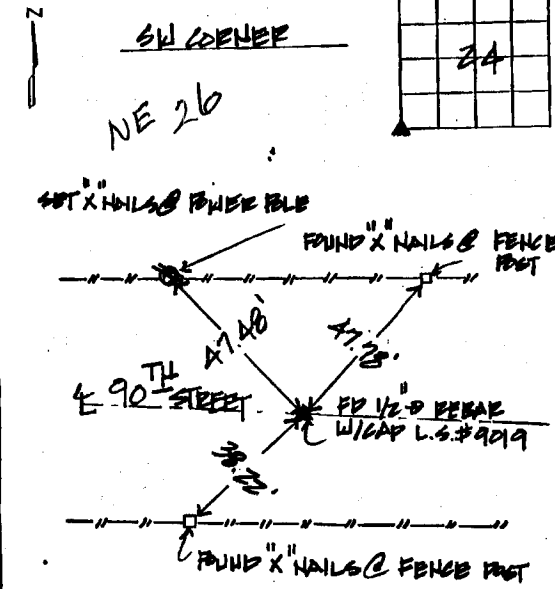 N
SW CORNER
24
NE 26
SET "X" NAILS @ POWER POLE
FOUND "X" NAILS @ FENCE
POST
47.48'
47.78'
℄ 90TH STREET
FD 1/2" Ø REBAR
W/CAP L.S.#9019
38.22'
FOUND "X" NAILS @ FENCE POST